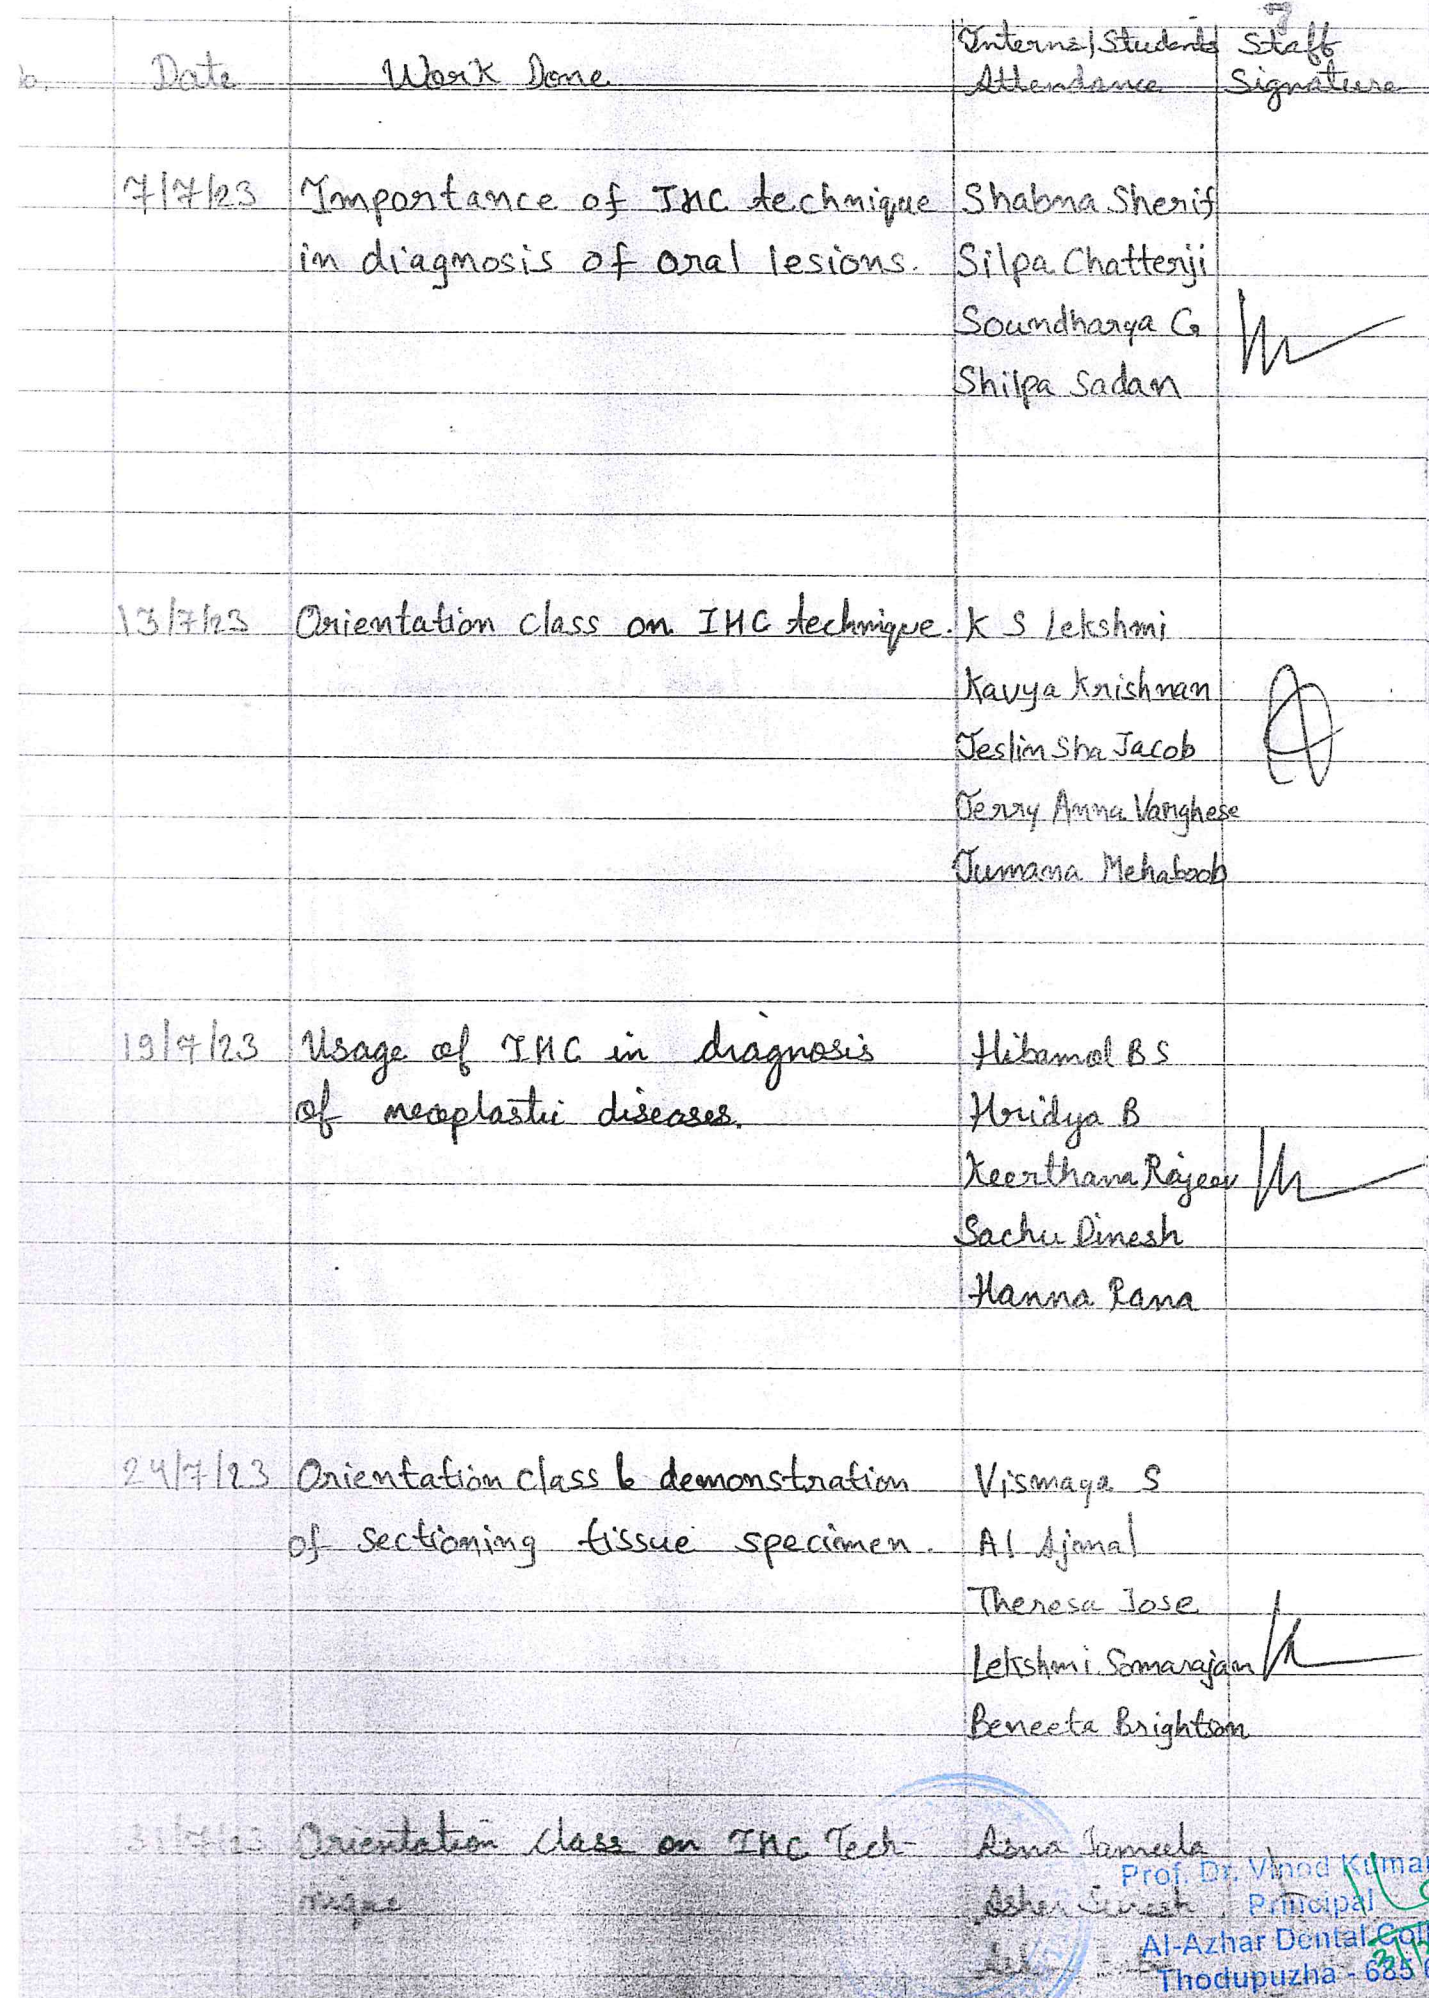 Interns/Students Staff
Date Work Done Attendance Signature
7/7/23 Importance of IHC technique Shabna Sherif
in diagnosis of oral lesions. Silpa Chatterji
Soundharya G
Shilpa Sadan
13/7/23 Orientation class on IHC technique. K S Lekshmi
Kavya Krishnan
Jeslin Sha Jacob
Jerry Anna Varghese
Jumana Mehaboob
19/7/23 Usage of IHC in diagnosis Hibamol B S
of neoplastic diseases. Hridya B
Keerthana Rajeev
Sachu Dinesh
Hanna Rana
24/7/23 Orientation class & demonstration Vismaya S
of sectioning tissue specimen. Al Ajmal
Theresa Jose
Lekshmi Somarajan
Beneeta Brighton
31/7/23 Orientation class on IHC Tech- Asna Jameela
nique Asher Suresh
Prof. Dr. Vinod Kumar
Principal
Al-Azhar Dental
Thodupuzha - 685